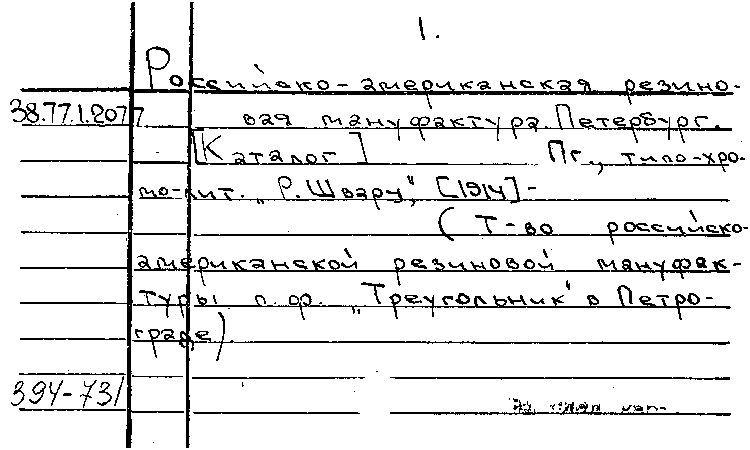 1.
Российско-американская резино-
38.77.1.2077 вая мануфактура. Петербург.
[Каталог] Пг., типо-хро-
мо-лит. „Р. Шварц", [1914]-
(Т-во российско-
американской резиновой мануфак-
туры п. ф. „Треугольник" в Петро-
граде)
394-731